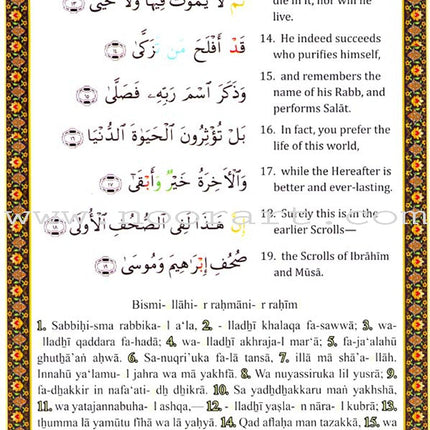 ثُمَّ لَا يَمُوتُ فِيهَا وَلَا يَحْيَىٰ ١٣
die in it, nor will he
live.
قَدْ أَفْلَحَ مَن تَزَكَّىٰ ١٤
14. He indeed succeeds
who purifies himself,
وَذَكَرَ اسْمَ رَبِّهِۦ فَصَلَّىٰ ١٥
15. and remembers the
name of his Rabb, and
performs Salāt.
بَلْ تُؤْثِرُونَ الْحَيَوٰةَ الدُّنْيَا ١٦
16. In fact, you prefer the
life of this world,
وَالْأَخِرَةُ خَيْرٌ وَأَبْقَىٰ ١٧
17. while the Hereafter is
better and ever-lasting.
إِنَّ هَٰذَا لَفِى الصُّحُفِ الْأُولَىٰ ١٨
18. Surely this is in the
earlier Scrolls—
صُحُفِ إِبْرَاهِيمَ وَمُوسَىٰ ١٩
19. the Scrolls of Ibrāhīm
and Mūsā.
Bismi- llāhi- r raḥmāni- r raḥīm
1. Sabbiḥi-sma rabbika- l a‘la, 2. - lladhī khalaqa fa-sawwā; 3. wa-
lladhī qaddara fa-hadā; 4. wa- lladhī akhraja-l mar‘ā; 5. fa-ja‘alahū
ghuthā’an aḥwā. 6. Sa-nuqri’uka fa-lā tansā, 7. illā mā shā’a- llāh.
Innahū ya‘lamu-l jahra wa mā yakhfā. 8. Wa nuyassiruka lil yusrā;
9. fa-dhakkir in nafa‘ati- dh dhikrā. 10. Sa yadhdhakkaru man yakhshā,
11. wa yatajannabuha- l ashqa,— 12. - lladhī yaṣla- n nāra-l kubrā; 13.
thumma lā yamūtu fīhā wa lā yaḥyā. 14. Qad aflaḥa man tazakkā, 15. wa